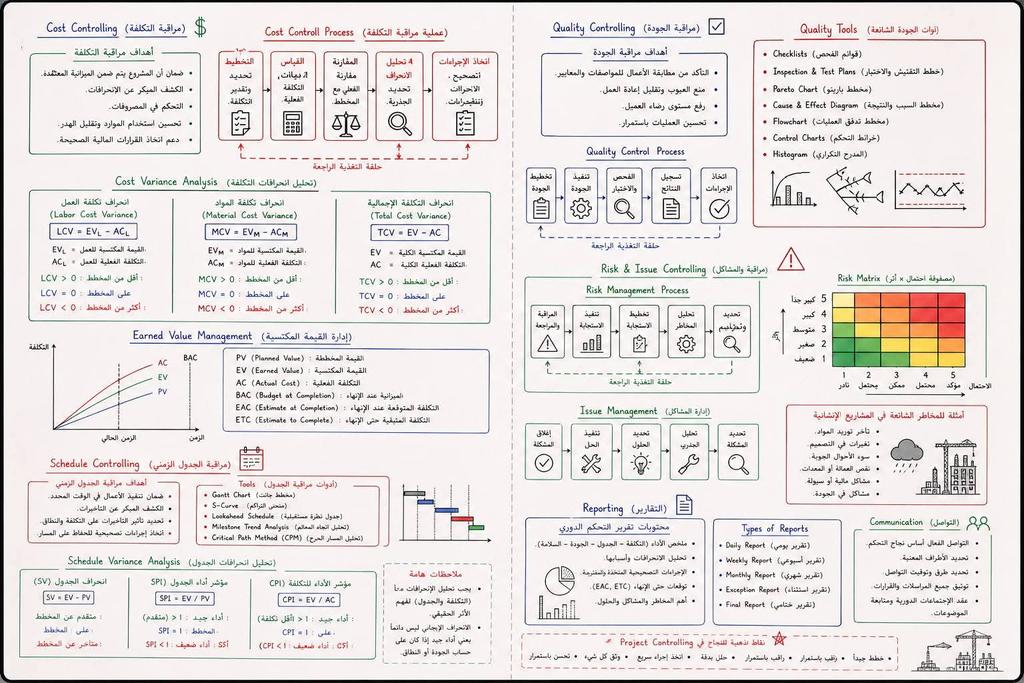 Cost Controlling (مراقبة التكلفة) $
أهداف مراقبة التكلفة
ضمان أن المشروع يتم ضمن الميزانية المعتمدة.
الكشف المبكر عن الإنحرافات.
التحكم في المصروفات.
تحسين استخدام الموارد وتقليل الهدر.
دعم اتخاذ القرارات المالية الصحيحة.
Cost Controll Process (عملية مراقبة التكلفة)
التخطيط
تحديد
وتقدير
التكلفة.
القياس
التكلفة
الفعلية.
المقارنة
مقارنة
الفعلي مع
المخطط.
4 تحليل
الانحراف
تحديد
الجذرية.
اتخاذ الإجراءات
حلقة التغذية الراجعة
Cost Variance Analysis (تحليل انحرافات التكلفة)
انحراف تكلفة العمل
(Labor Cost Variance)
LCV = EVL − ACL
EVL = القيمة المكتسبة للعمل.
ACL = التكلفة الفعلية للعمل.
LCV > 0 : أقل من المخطط :
LCV = 0 : على المخطط :
LCV < 0 : أكثر من المخطط :
انحراف تكلفة المواد
(Material Cost Variance)
MCV = EVM − ACM
EVM = القيمة المكتسبة للمواد.
ACM = التكلفة الفعلية للمواد.
MCV > 0 : أقل من المخطط :
MCV = 0 : على المخطط :
MCV < 0 : أكثر من المخطط :
انحراف التكلفة الإجمالية
(Total Cost Variance)
TCV = EV − AC
EV = القيمة المكتسبة الكلية
AC = التكلفة الفعلية الكلية
TCV > 0 : أقل من المخطط :
TCV = 0 : على المخطط :
TCV < 0 : أكثر من المخطط :
Earned Value Management (إدارة القيمة المكتسبة)
التكلفة
BAC
AC
EV
PV
الزمن الحالي
الزمن
PV (Planned Value) : القيمة المخططة
EV (Earned Value) : القيمة المكتسبة
AC (Actual Cost) : التكلفة الفعلية
BAC (Budget at Completion) : الميزانية عند الإنهاء
EAC (Estimate at Completion) : التكلفة المتوقعة عند الإنهاء
ETC (Estimate to Complete) : التكلفة المتبقية حتى الإنهاء
Schedule Controlling (مراقبة الجدول الزمني)
أهداف مراقبة الجدول الزمني
ضمان تنفيذ الأعمال في الوقت المحدد.
الكشف المبكر عن التأخيرات.
تحديد تأثير التأخيرات على التكلفة والنطاق.
اتخاذ إجراءات تصحيحية للحفاظ على المسار.
Tools (أدوات مراقبة الجدول)
Gantt Chart (مخطط جانت)
S-Curve (منحنى التراكم)
Lookahead Schedule (جدول نظرة مستقبلية)
Milestone Trend Analysis (تحليل اتجاه المعالم)
Critical Path Method (CPM) (تحليل المسار الحرج)
Schedule Variance Analysis (تحليل انحرافات الجدول)
انحراف الجدول (SV)
SV = EV − PV
متقدم عن المخطط
على المخطط :
متأخر عن المخطط :
مؤشر أداء الجدول (SPI)
SPI = EV / PV
أداء جيد : 1< (متقدم)
SPI = 1 : المخطط :
SPI < 1 : أداء ضعيف
مؤشر الأداء للتكلفة (CPI)
CPI = EV / AC
أداء جيد : 1< (أقل تكلفة)
CPI = 1 : على :
(CPI < 1 : أداء ضعيف
ملاحظات هامة
يجب تحليل الإنحرافات معاً
(التكلفة والجدول) لفهم
الأثر الحقيقي.
الانحراف الإيجابي ليس دائماً
يعني أداء جيد إذا كان على
حساب الجودة أو النطاق.
Quality Controlling (مراقبة الجودة)
أهداف مراقبة الجودة
التأكد من مطابقة الأعمال للمواصفات والمعايير.
منع العيوب وتقليل إعادة العمل.
رفع مستوى رضاء العميل.
تحسين العمليات باستمرار.
Quality Control Process
تخطيط
الجودة
تنفيذ
الجودة
الفحص
والاختبار
تسجيل
النتائج
اتخاذ
الإجراءات
حلقة التغذية الراجعة
Quality Tools (أدوات الجودة الشائعة)
Checklists (قوائم الفحص)
Inspection & Test Plans (خطط التفتيش والاختبار)
Pareto Chart (مخطط باريتو)
Cause & Effect Diagram (مخطط السبب والنتيجة)
Flowchart (مخطط تدفق العمليات)
Control Charts (خرائط التحكم)
Histogram (المدرج التكراري)
Risk & Issue Controlling (مراقبة والمشاكل)
Risk Management Process
المراقبة
والمراجعة
تنفيذ
الاستجابة
تخطيط
الاستجابة
تحليل
المخاطر
تحديد
حلقة التغذية الراجعة
Risk Matrix (مصفوفة احتمال × أثر)
الأثر
كبير جداً 5
كبير 4
متوسط 3
صغير 2
ضعيف 1
1 2 3 4 5
نادر يحتمل ممكن محتمل مؤكد الاحتمال
Issue Management (إدارة المشاكل)
إغلاق
المشكلة
تنفيذ
الحل
تحديد
الحلول
تحليل
الجذري
تحديد
المشكلة
أمثلة للمخاطر الشائعة في المشاريع الإنشائية
تأخر توريد المواد.
تغيرات في التصميم.
سوء الأحوال الجوية.
نقص العمالة أو المعدات.
مشاكل مالية أو سيولة
مشاكل في الجودة.
Reporting (التقارير)
محتويات تقرير التحكم الدوري
ملخص الأداء (التكلفة – الجدول – الجودة – السلامة).
تحليل الانحرافات وأسبابها.
الإجراءات التصحيحية المتخذة والمقترحة.
توقعات حتى الإنهاء (EAC, ETC).
أهم المخاطر والمشاكل والحلول.
Types of Reports
Daily Report (تقرير يومي)
Weekly Report (تقرير أسبوعي)
Monthly Report (تقرير شهري)
Exception Report (تقرير استثناء)
Final Report (تقرير ختامي)
Communication (التواصل)
التواصل الفعال أساس نجاح التحكم.
تحديد الأطراف المعنية.
تحديد طرق وتوقيت التواصل
توثيق جميع المراسلات والقرارات.
عقد الإجتماعات الدورية ومتابعة
الموضوعات.
نقاط ذهبية للنجاح في Project Controlling
خطط جيداً • راقب باستمرار • راقب باستمرار • حلل بدقة • اتخذ إجراء سريع • وثق كل شيء • تحسن باستمرار